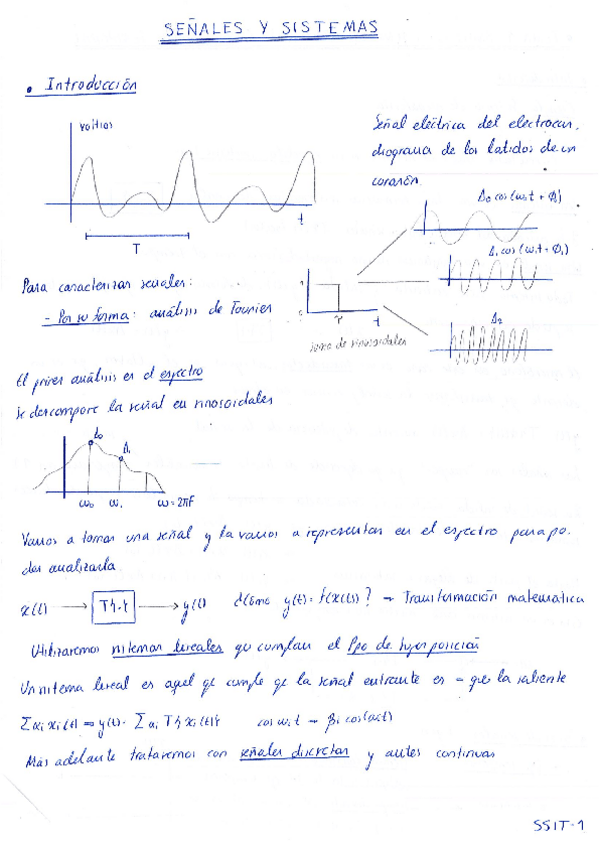 SEÑALES Y SISTEMAS
• Introducción
voltios
t
T
Señal eléctrica del electrocar-
diograma de los latidos de un
corazón.
A₀ cos(ω₀t + Φ₀)
A₁ cos(ω₁t + Φ₁)
A₂
Para caracterizar señales:
- Por su forma: análisis de Fourier
1
0
τ
t
suma de sinusoidales
El primer análisis es el espectro
Se descompone la señal en sinusoidales
A₀
A₁
ω₀ ω₁ ω=2πF
Vamos a tomar una señal y la vamos a representar en el espectro para po-
der analizarla
x(t) → T{·} → y(t) ¿Cómo y(t) = f(x(t))? → Transformación matemática
Utilizaremos sistemas lineales qu cumplan el Ppo de superposición
Un sistema lineal es aquel qe cumple qe la señal entrante es = que la saliente
Σαi xi(t) ⇒ y(t) = Σ αi T{xi(t)} cos ω₁t → β₁ cos(ω₁t)
Más adelante trataremos con señales discretas y antes continuas
SSIT-1